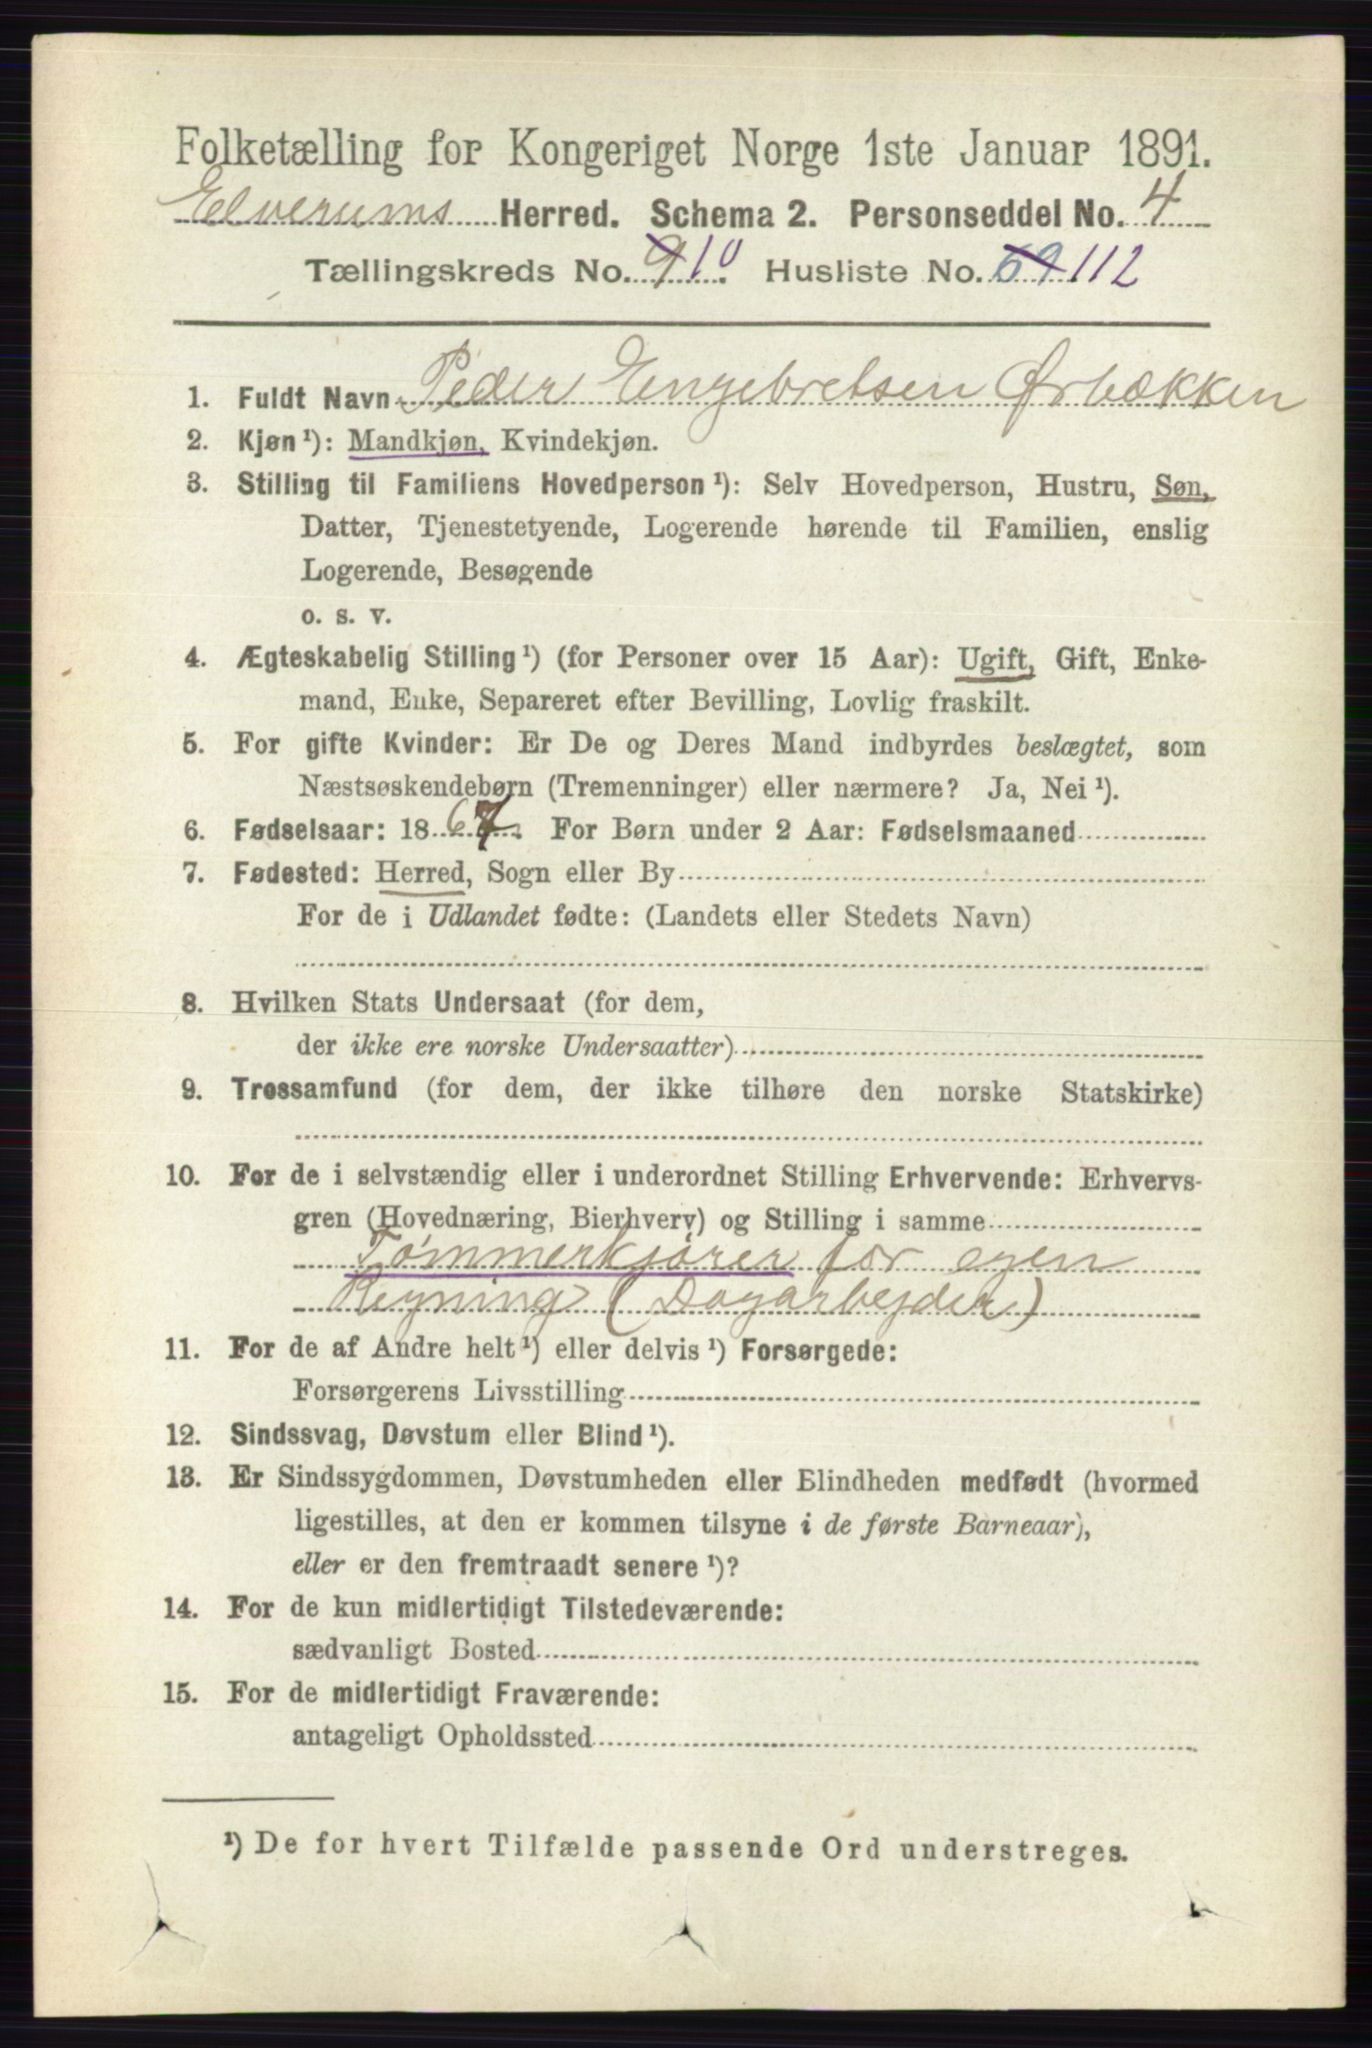 Folketælling for Kongeriget Norge 1ste Januar 1891.
Elverums Herred. Schema 2. Personseddel No. 4
Tællingskreds No. 9 10. Husliste No. 69 112
1. Fuldt Navn Peder Engebretsen Ørbækken
2. Kjøn¹): Mandkjøn, Kvindekjøn.
3. Stilling til Familiens Hovedperson¹): Selv Hovedperson, Hustru, Søn,
Datter, Tjenestetyende, Logerende hørende til Familien, enslig
Logerende, Besøgende
o. s. v.
4. Ægteskabelig Stilling¹) (for Personer over 15 Aar): Ugift, Gift, Enke-
mand, Enke, Separeret efter Bevilling, Lovlig fraskilt.
5. For gifte Kvinder: Er De og Deres Mand indbyrdes beslægtet, som
Næstsøskendebørn (Tremenninger) eller nærmere? Ja, Nei¹).
6. Fødselsaar: 1867. For Børn under 2 Aar: Fødselsmaaned
7. Fødested: Herred, Sogn eller By
For de i Udlandet fødte: (Landets eller Stedets Navn)
8. Hvilken Stats Undersaat (for dem,
der ikke ere norske Undersaatter)
9. Trossamfund (for dem, der ikke tilhøre den norske Statskirke)
10. For de i selvstændig eller i underordnet Stilling Erhvervende: Erhvervs-
gren (Hovednæring, Bierhverv) og Stilling i samme
Tømmerkjører for egen
Regning (Dagarbejder)
11. For de af Andre helt¹) eller delvis¹) Forsørgede:
Forsørgerens Livsstilling
12. Sindssvag, Døvstum eller Blind¹).
13. Er Sindssygdommen, Døvstumheden eller Blindheden medfødt (hvormed
ligestilles, at den er kommen tilsyne i de første Barneaar),
eller er den fremtraadt senere¹)?
14. For de kun midlertidigt Tilstedeværende:
sædvanligt Bosted
15. For de midlertidigt Fraværende:
antageligt Opholdssted
¹) De for hvert Tilfælde passende Ord understreges.